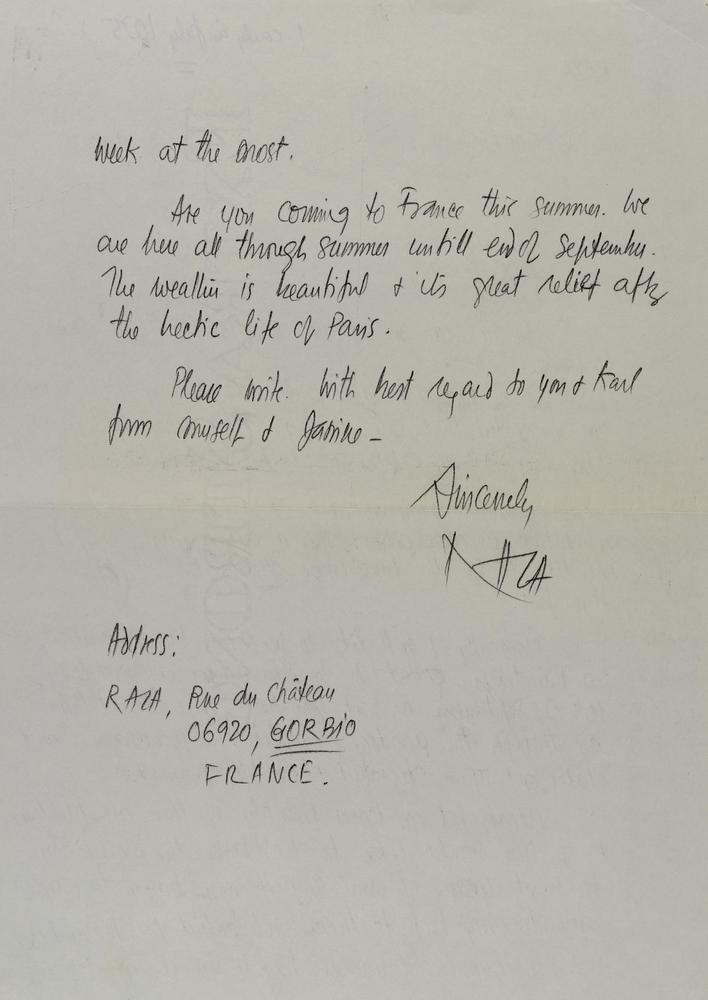 week at the most.
Are you coming to France this summer. We
are here all through summer untill end of September.
The weather is beautiful & its great relief after
the hectic life of Paris.
Please write. With best regard to you & Karl
from myself & Janine –
Sincerely
RAZA
Address:
RAZA, Rue du Château
06920, GORBIO
FRANCE.